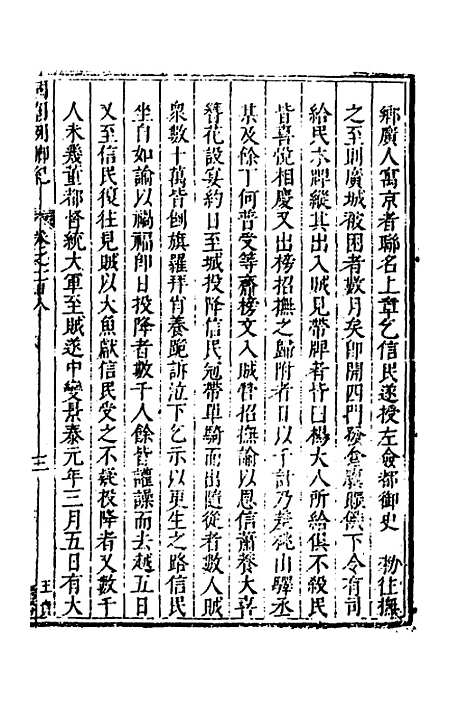 鄉廣人寓京者聯名上章乞信民遂授左僉都御史　勑往撫
之至則廣城被困者數月矣即開四門發倉廩賑餓下令有司
給民木牌縱其出入賊見帶牌者皆曰楊大人所給俱不殺民
皆喜悅相慶又出榜招撫之歸附者日以千計乃差姚山驛丞
某及餘丁何普受等齎榜文入賊營招撫諭以恩信蕭養大喜
簪花設宴約日至城投降信民冠帶單騎而出隨從者數人賊
衆數十萬皆倒旗羅拜肖養跪訴泣下乞示以更生之路信民
坐自如諭以禍福即日投降者數千人餘皆讙譟而去越五日
又至信民復往見賊以大魚獻信民受之不疑投降者又數千
人未幾董都督統大軍至賊遂中變景泰元年三月五日有大
國朝列卿紀　卷之一百八　三